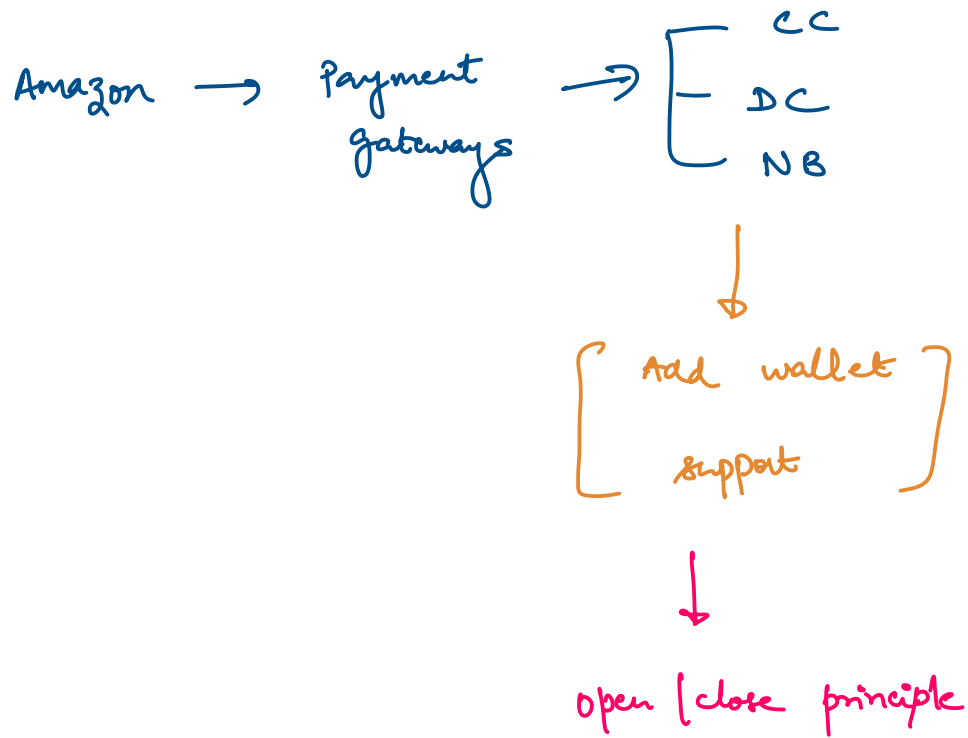 Amazon → Payment gateways →
CC
DC
NB
Add wallet
support
open / close principle